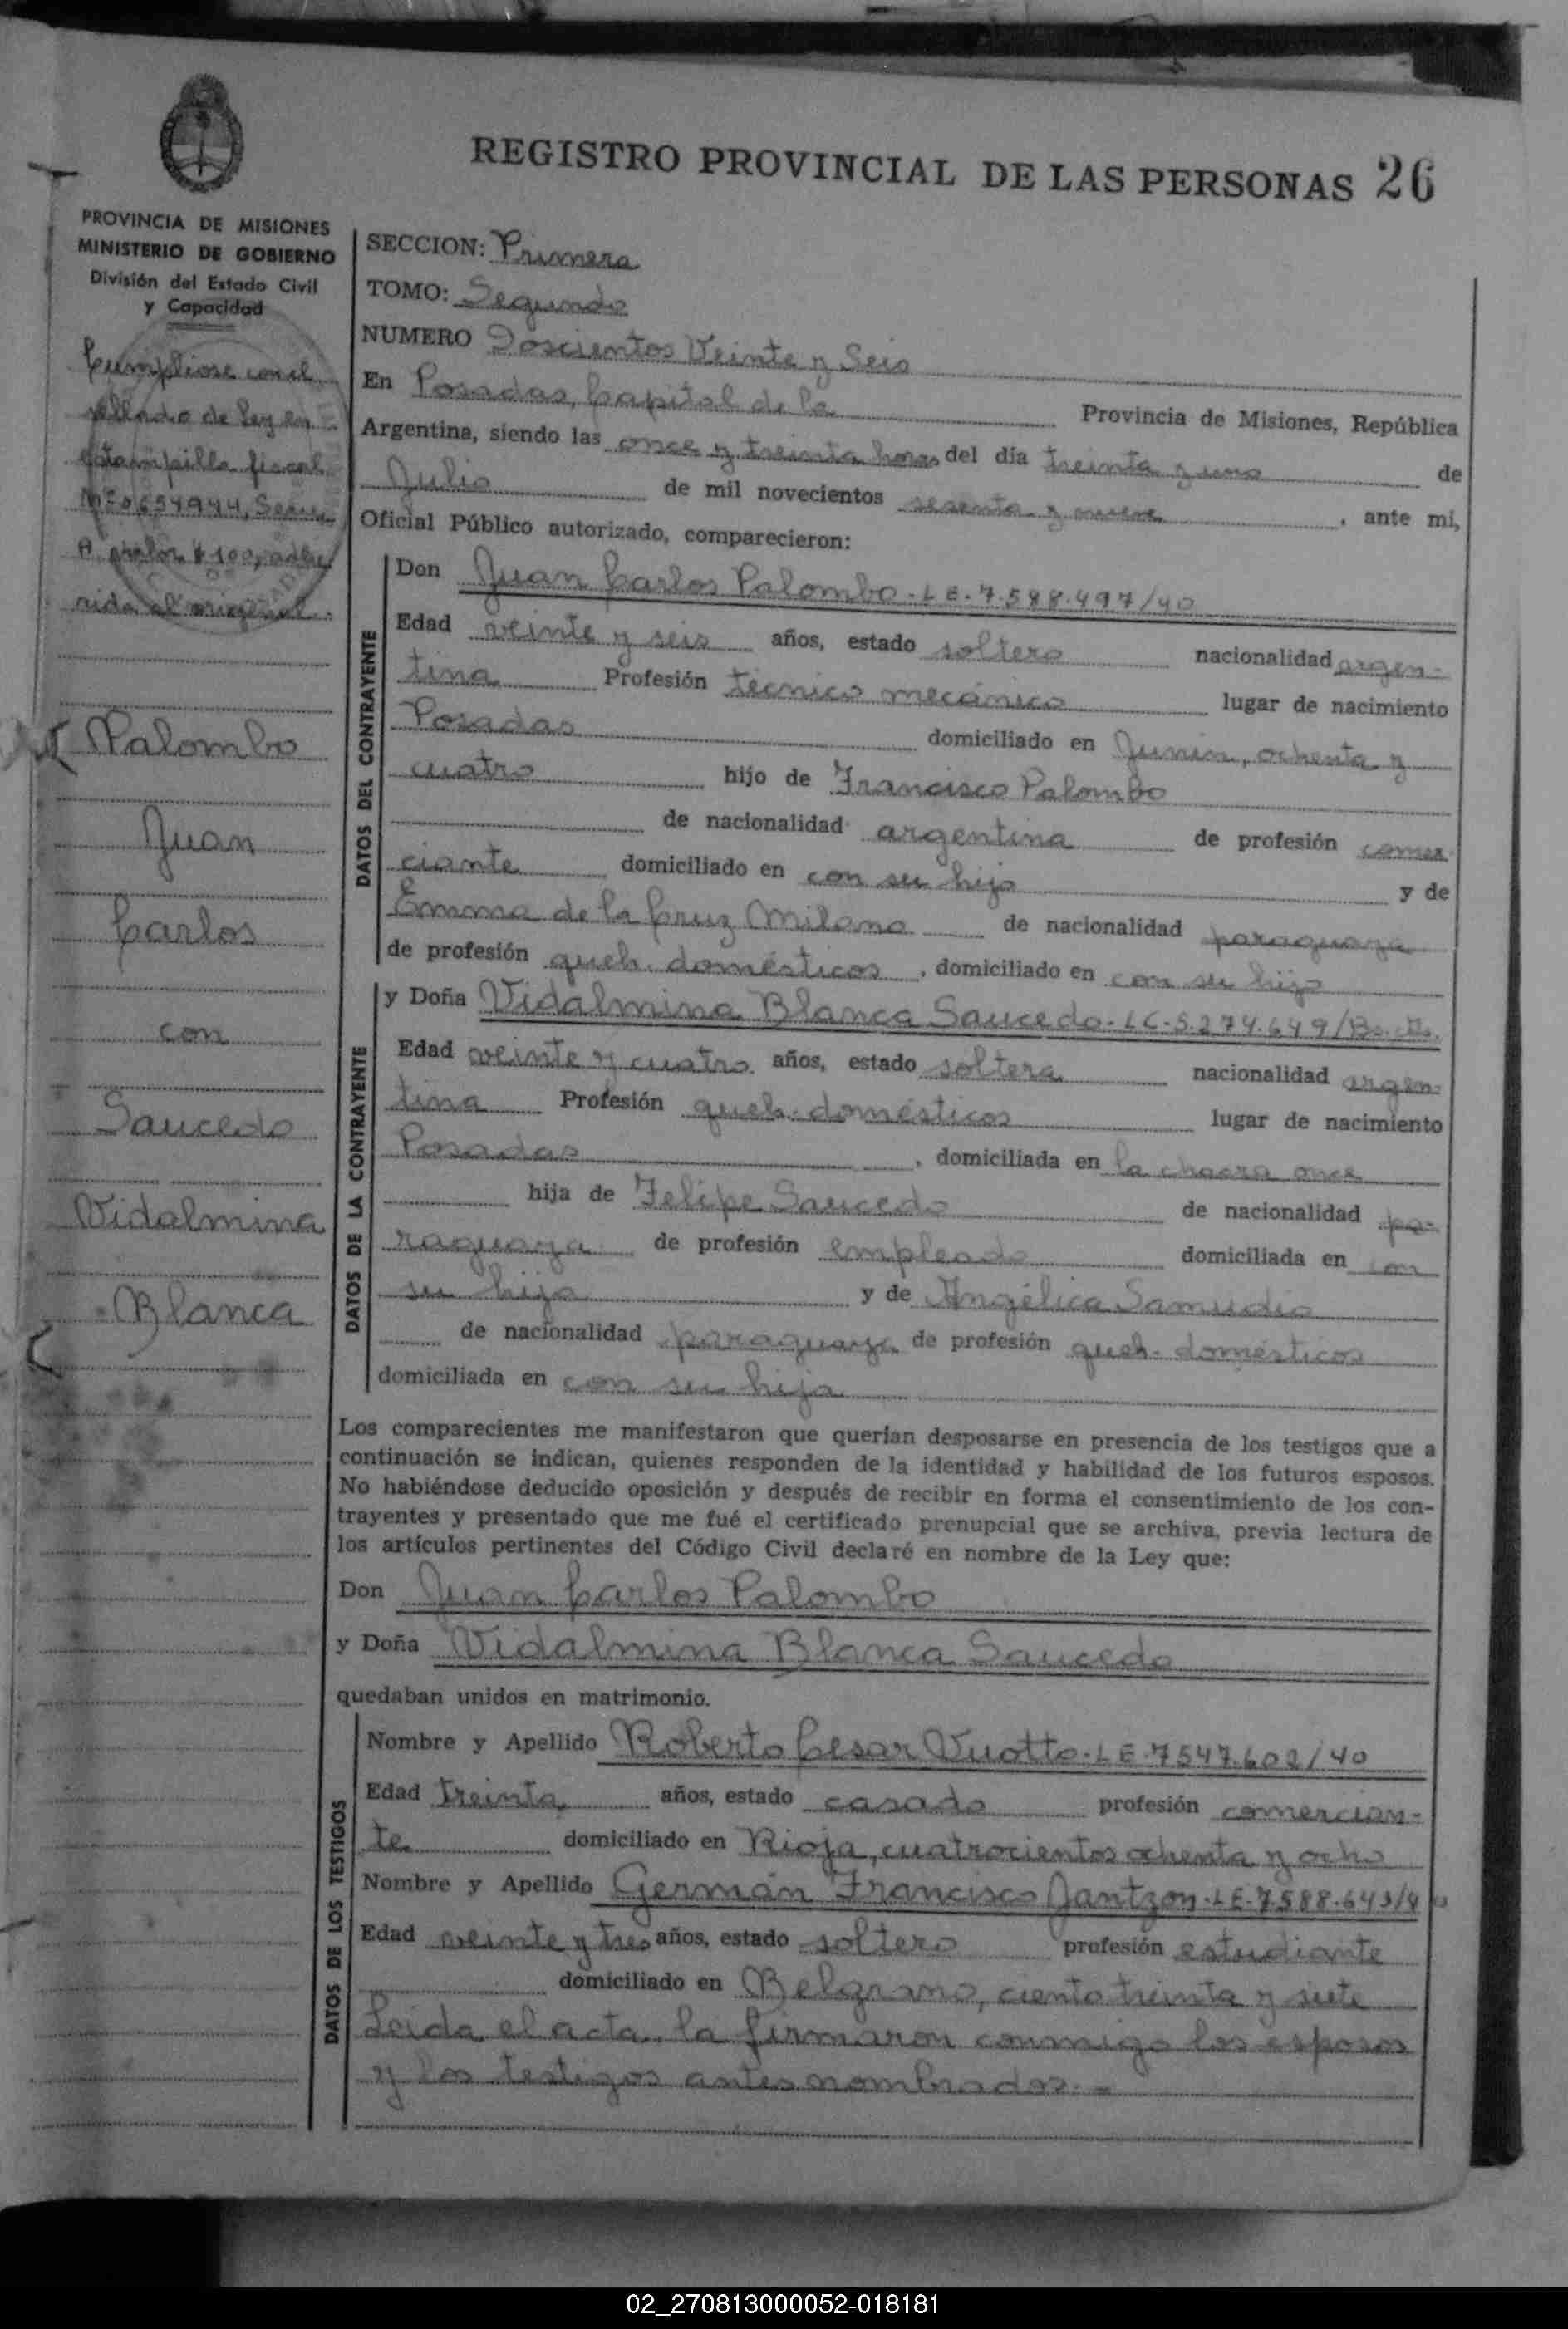 REGISTRO PROVINCIAL DE LAS PERSONAS 26
PROVINCIA DE MISIONES
MINISTERIO DE GOBIERNO
División del Estado Civil
y Capacidad
Cumpliose con el
sellado de ley en
estampilla fiscal
Nº 0654944, Serie
A valor $ 100, adhe
rida al original.
Palombo
Juan
Carlos
con
Saucedo
Vidalmina
Blanca
SECCION: Primera
TOMO: Segundo
NUMERO Doscientos Veinte y Seis
En Posadas, Capital de la Provincia de Misiones, República
Argentina, siendo las once y treinta horas del día treinta y uno de
Julio de mil novecientos sesenta y nueve, ante mí,
Oficial Público autorizado, comparecieron:
DATOS DEL CONTRAYENTE
Don Juan Carlos Palombo-LE-7.588.497/40
Edad veinte y seis años, estado soltero nacionalidad argen-
tina Profesión técnico mecánico lugar de nacimiento
Posadas domiciliado en Junín, ochenta y
cuatro hijo de Francisco Palombo
de nacionalidad argentina de profesión comer
ciante domiciliado en con su hijo y de
Emma de la Cruz Milano de nacionalidad paraguaya
de profesión queh. domésticos, domiciliado en con su hijo
DATOS DE LA CONTRAYENTE
y Doña Vidalmina Blanca Saucedo-LC-5.274.649/Bs.As.
Edad veinte y cuatro años, estado soltera nacionalidad argen-
tina Profesión queh. domésticos lugar de nacimiento
Posadas, domiciliada en la chacra once
hija de Felipe Saucedo de nacionalidad pa-
raguaya de profesión empleado domiciliada en con
su hija y de Angélica Samudio
de nacionalidad paraguaya de profesión queh. domésticos
domiciliada en con su hija
Los comparecientes me manifestaron que querían desposarse en presencia de los testigos que a
continuación se indican, quienes responden de la identidad y habilidad de los futuros esposos.
No habiéndose deducido oposición y después de recibir en forma el consentimiento de los con-
trayentes y presentado que me fué el certificado prenupcial que se archiva, previa lectura de
los artículos pertinentes del Código Civil declaré en nombre de la Ley que:
Don Juan Carlos Palombo
y Doña Vidalmina Blanca Saucedo
quedaban unidos en matrimonio.
DATOS DE LOS TESTIGOS
Nombre y Apellido Roberto Cesar Vuotto-LE-7547.602/40
Edad treinta años, estado casado profesión comercian-
te domiciliado en Rioja, cuatrocientos ochenta y ocho
Nombre y Apellido Germán Francisco Jantzon-LE-7588.643/40
Edad veinte y tres años, estado soltero profesión estudiante
domiciliado en Belgrano, ciento treinta y siete
Leida el acta, la firmaron conmigo los esposos
y los testigos antes nombrados.-
02_270813000052-018181